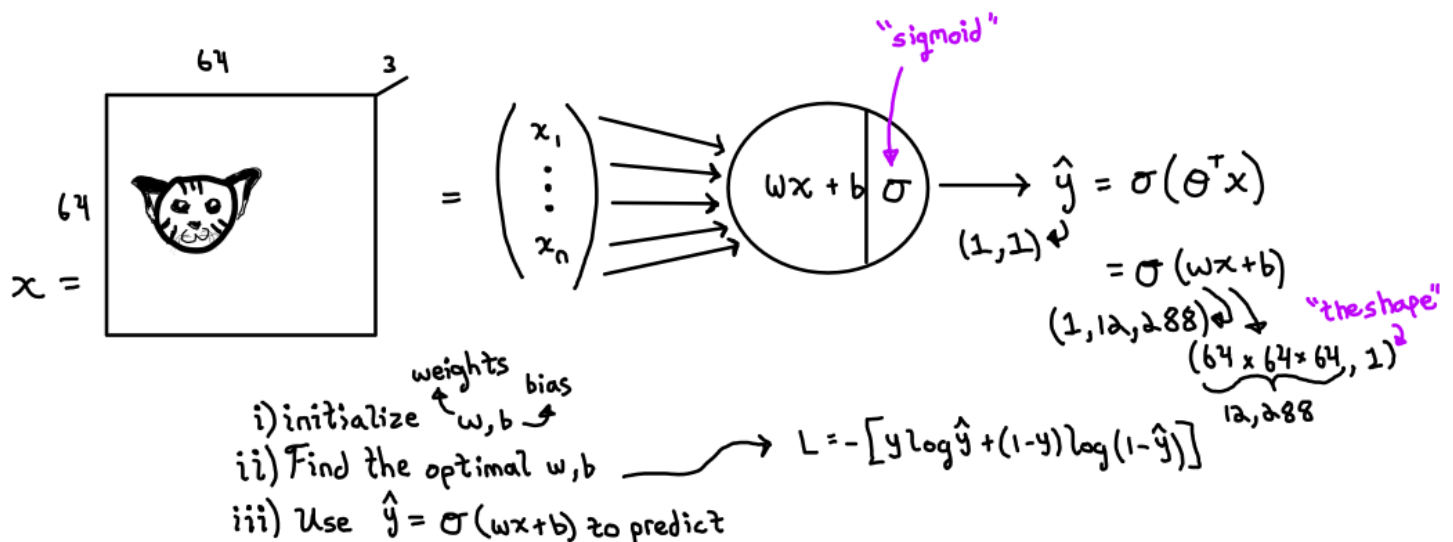 "sigmoid"
64 3
64
x =
=
x₁
⋮
xₙ
wx + b | σ
ŷ = σ(θᵀx)
(1,1)
= σ(wx+b)
(1,12,288)
"the shape"
(64 × 64 × 64, 1)
12,288
weights
bias
i) initialize w,b
ii) Find the optimal w,b
L = -[y log ŷ + (1-y) log (1-ŷ)]
iii) Use ŷ = σ(wx+b) to predict